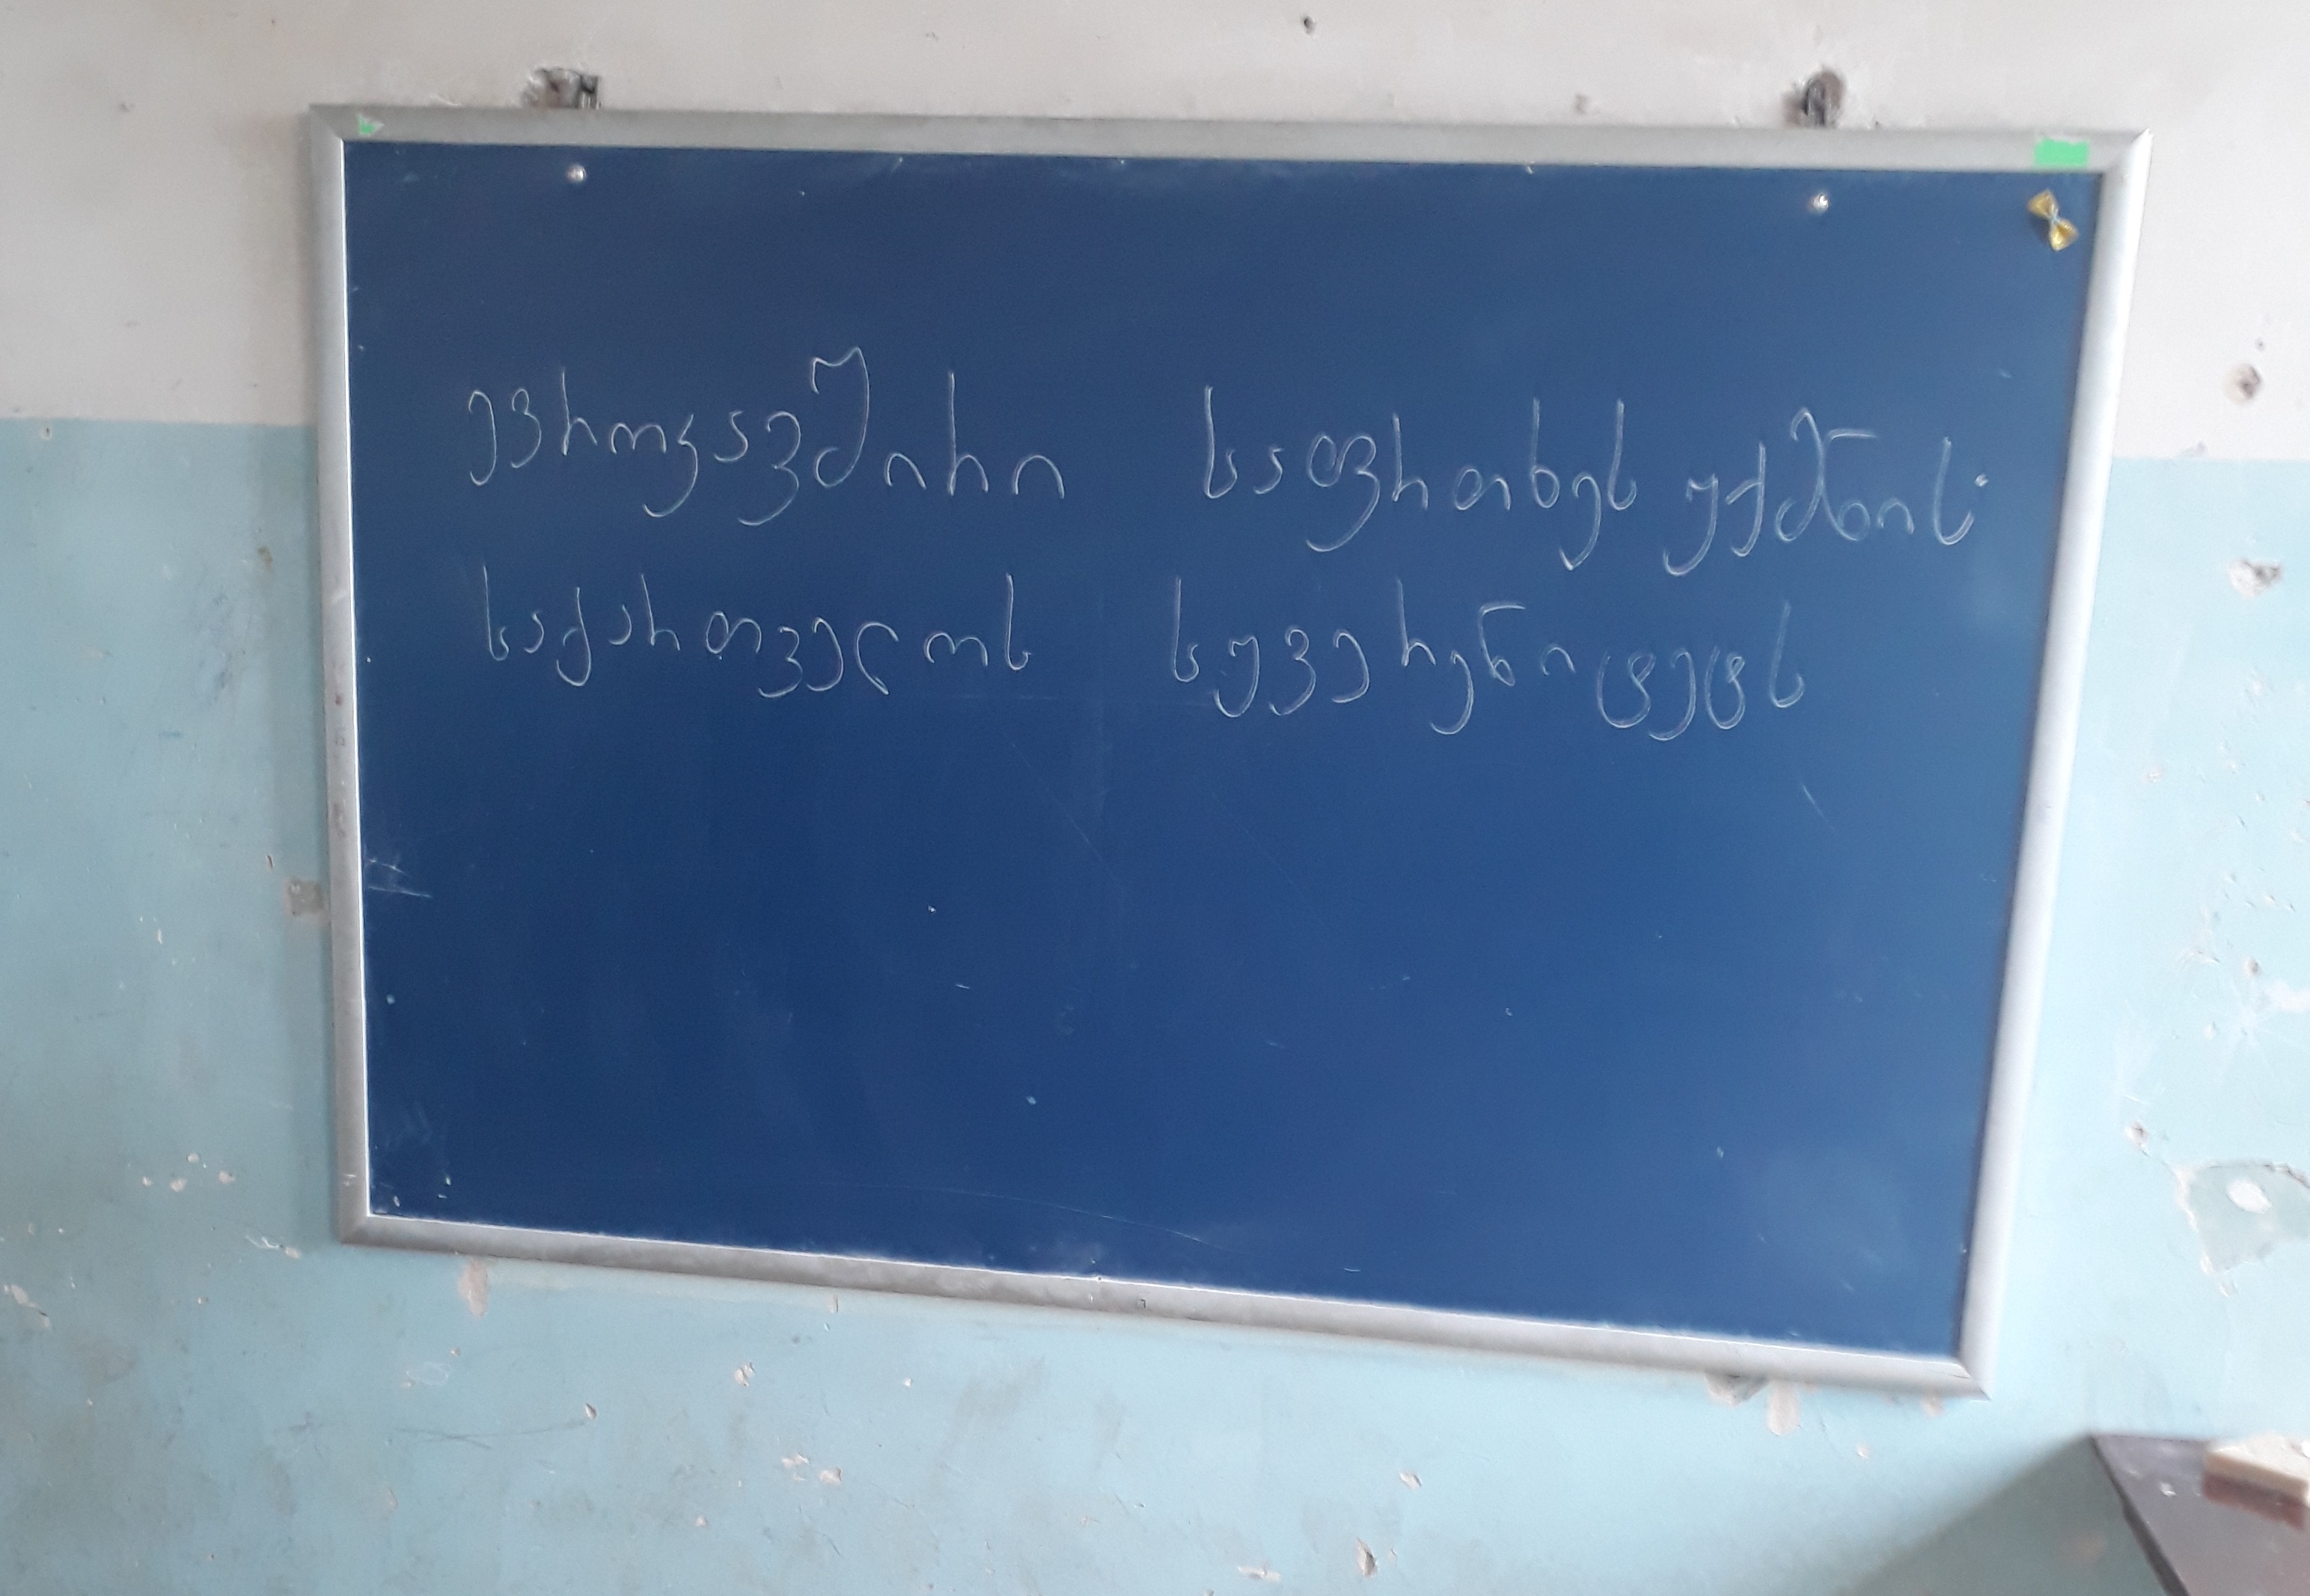 ევროკავშირი საფრთხეს უქმნის
საქართველოს სუვერენიტეტს